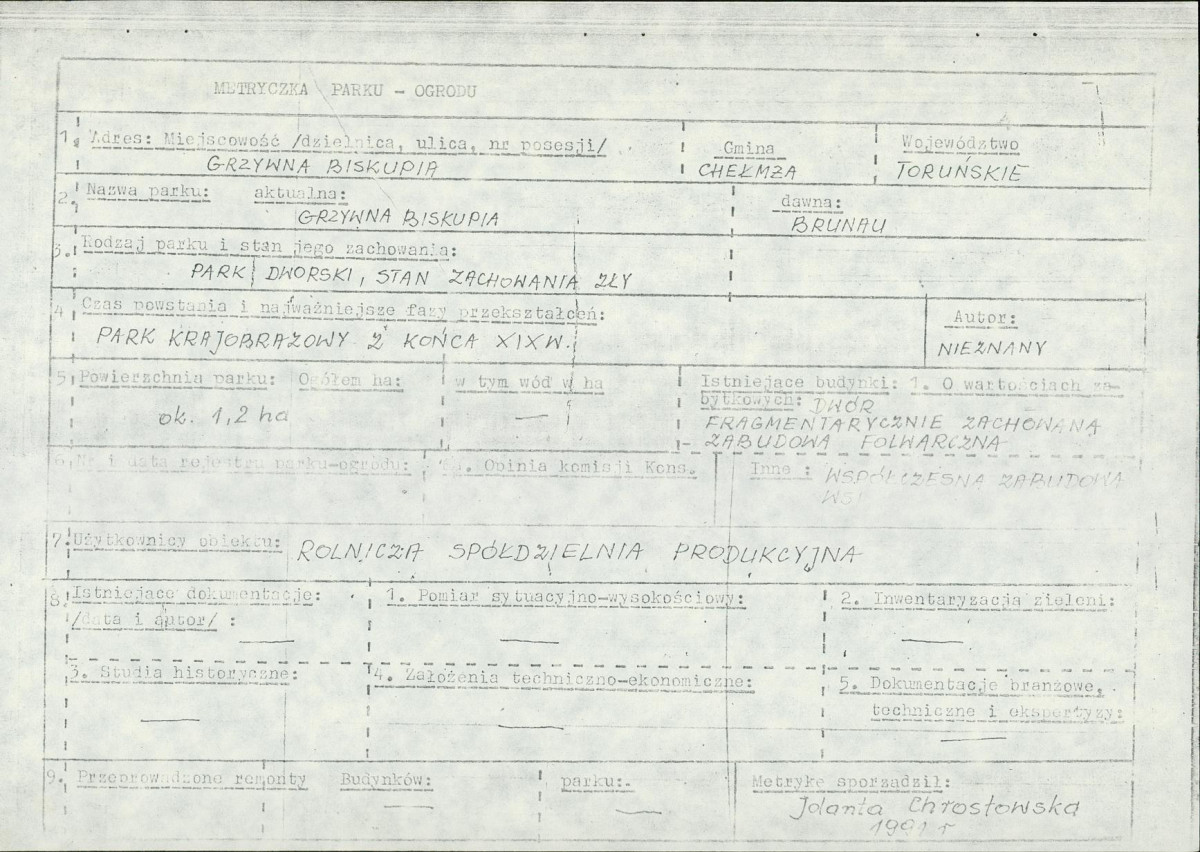 METRYCZKA PARKU - OGRODU
1. Adres: Miejscowość /dzielnica, ulica, nr posesji/
GRZYWNA BISKUPIA
Gmina
CHEŁMŻA
Województwo
TORUŃSKIE
2. Nazwa parku: aktualna:
GRZYWNA BISKUPIA
dawna:
BRUNAU
3. Rodzaj parku i stan jego zachowania:
PARK DWORSKI, STAN ZACHOWANIA ZŁY
4 Czas powstania i najważniejsze fazy przekształceń:
PARK KRAJOBRAZOWY Z KOŃCA XIX W.
Autor:
NIEZNANY
5. Powierzchnia parku: Ogółem ha:
ok. 1,2 ha
w tym wód w ha
—
Istniejące budynki: 1. O wartościach za-
bytkowych: DWÓR
FRAGMENTARYCZNIE ZACHOWANĄ
ZABUDOWA FOLWARCZNĄ
6. Nr i data rejestru parku-ogrodu:
Opinia komisji Kons.
Inne : WSPÓŁCZESNA ZABUDOWA
WSI
7. Użytkownicy obiektu: ROLNICZA SPÓŁDZIELNIA PRODUKCYJNA
8. Istniejące dokumentacje:
/data i autor/ :
—
1. Pomiar sytuacyjno-wysokościowy:
—
2. Inwentaryzacja zieleni:
—
3. Studia historyczne:
—
4. Założenia techniczno-ekonomiczne:
—
5. Dokumentacje branżowe,
techniczne i ekspertyzy:
—
9. Przeprowadzone remonty Budynków:
—
parku:
—
Metrykę sporządził:
Jolanta Chrostowska
1991 r